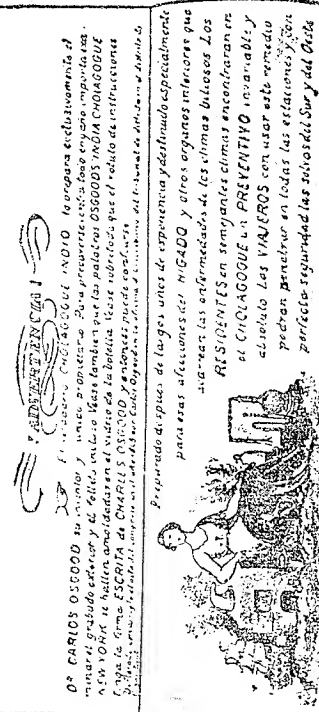 ¡ADVERTENCIA!
El verdadero CHOLAGOGUE INDIO lo prepara exclusivamente el
Dr CARLOS OSGOOD su inventor y único propietario Para precaverse contra todo engaño importa exa-
minar el grabado exterior y el sello Vease tambien que las palabras OSGOODS INDIA CHOLAGOGUE
NEW YORK se hallen amoldadas en el vidrio de la botella Vease sobre todo que el rotulo de instrucciones
tenga la firma ESCRITA de CHARLES OSGOOD y entonces puede confiarse
Preparado despues de largos años de experiencia y destinado especialmente
para esas afecciones del HIGADO y otros organos interiores que
acarrean las enfermedades de los climas biliosos Los
RESIDENTES en semejantes climas encontraran en
el CHOLAGOGUE un PREVENTIVO invariable y
absoluto Los VIAJEROS con usar este remedio
podran penetrar en todas las estaciones y con
perfecta seguridad las selvas del Sur y del Oeste